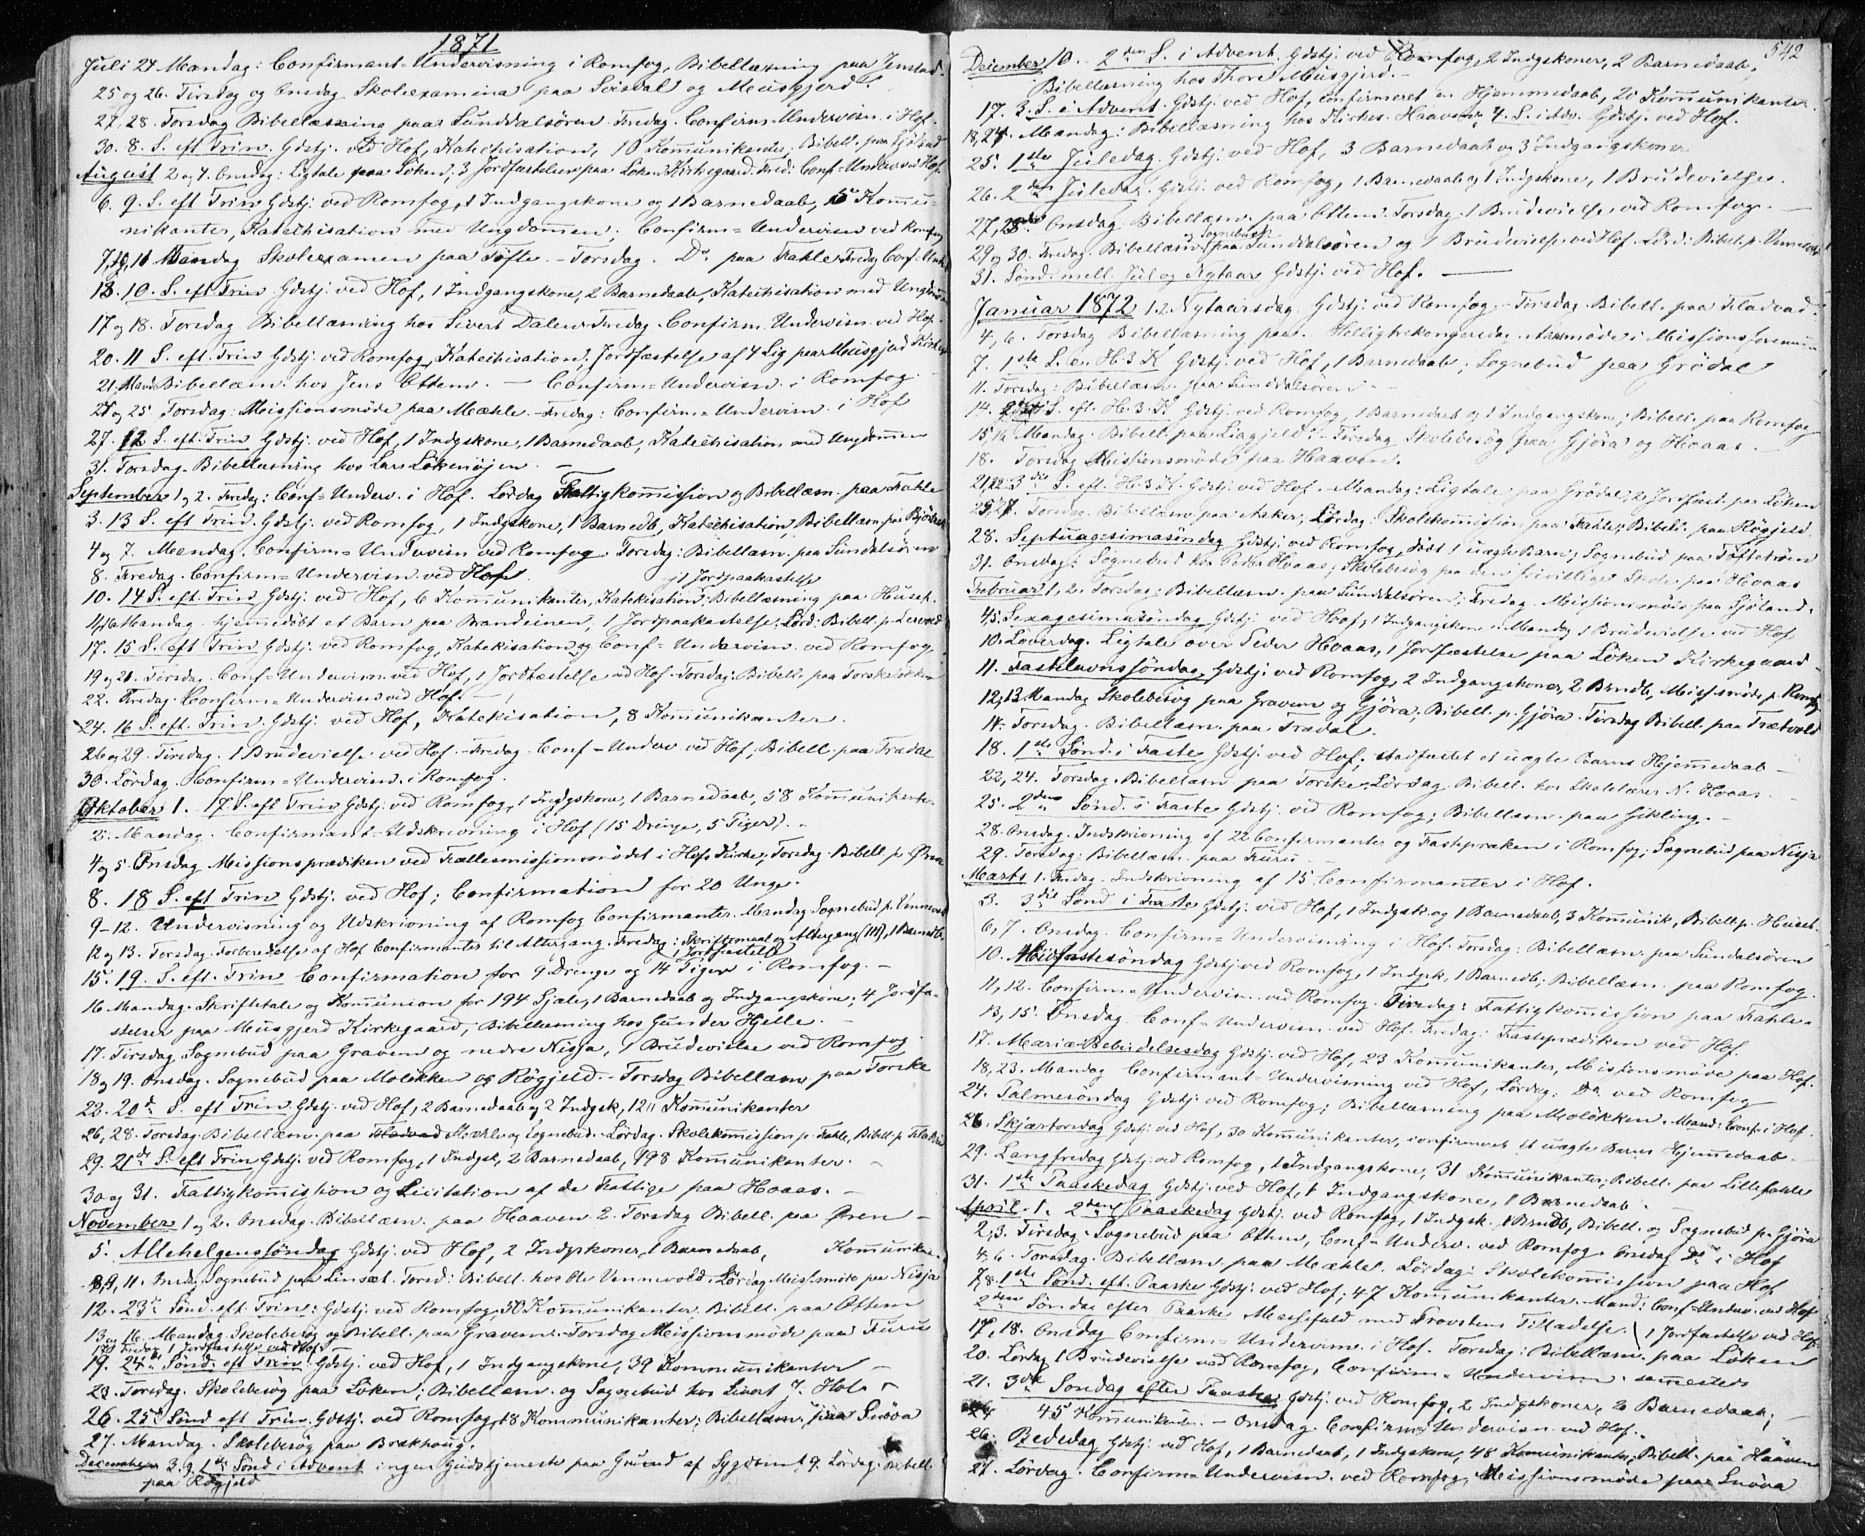 1871
Juli 24 Mandag: Confirmant-Undervisning i Romfog, Bibellæsning paa Jenstad.
25 og 26. Tirsdag og Onsdag Skoleexamina paa Seisdal og Meusgjerd.
27, 28. Torsdag Bibellæsning paa Sunddalsören. Fredag. Confirm. Undervisn. i Hof.
30. 8. S. eft Trin. Gdstj. ved Hof, Katechisation, 10 Komunikanter; Bibell. paa Gjöland
August 2 og 4. Onsdag: Ligtale paa Löken, 3 Jordfæstelser paa Löken Kirkegaard. Fred: Conf. Underv ved Hof.
6. 9. S. eft Trin Gdstj. ved Romfog, 1 Indgangskone og 1 Barnedaab, Kommu-
nikanter, Katechisation med Ungdomen; Confirm-Undervisn ved Romfog
7, 10, 11 Mandag Skoleexamen paa Tofte. Torsdag. Do. paa Fahle Fredag Conf-Und
13. 10. S. eft Trin. Gdstj. ved Hof, 1 Indgangskone, 2 Barnedaab, Katechisation med Ungdomen
17 og 18. Torsdag Bibellæsning hos Sivert Dalen. Fredag. Confirm. Undervisn. ved Hof.
20. 11 S. eft. Trin Gdstj. ved Romfog, Katechisation, Jordfæstelse af 4 Lig paa Meusgjerd Kirkeg
21. Mand Bibellæsn. hos Jens Ottem. — Confirm-Undervisn. i Romfog.
24 og 25 Torsdag: Missionsmöde paa Mæhle. Fredag: Confirm.-Undervisn. i Hof
27. 12 S. eft. Trin Gdstj. ved Hof, 1 Indgskone, 1 Barnedaab, Katechisation med Ungdomen
31. Torsdag. Bibellæsning hos Lars Lökenöjen. —
September 1 og 2. Fredag: Conf-Underv. i Hof. Lördag Fattigkomission og Bibellæsn. paa Fahle
3. 13 S. eft Trin. Gdstj. ved Romfog, 1 Indgskone, 1 Barnedb, Katechisation, Bibellæsn paa
4 og 7. Mandag. Confirm-Undervisn ved Romfog. Torsdag: Bibellæsn. paa Sunddalsören
8. Fredag. Confirm-Undervisn. ved Hof. 1 Jordpaakastelse
10. 14 S. eft. Trin Gdstj: ved Hof, 6 Komunikanter, Katekisation; Bibellæsning paa Huset.
Mandag. hjemmedöbt et Barn paa Brandeinen, 1 Jordpaakastelse. Lörd: Bibell. p.
17. 15 S. eft Trin Gdstj. ved Romfog, Katekisation og Conf-Undervisn. ved Romfog.
19 og 21. Tirsdag. Conf-Undervisn ved Hof, 1 Jordfæstelse ved Hof. Torsdag: Bibell. paa Torske
22. Fredag. Confirm-Undervisn ved Hof.
24. 16 S. eft. Trin. Gdstj. ved Hof, Katekisation, 8 Komunikanter.
26 og 29. Tirsdag. 1 Brudevielse ved Hof. Fredag. Conf-Underv ved Hof; Bibell. paa Trædal
30. Lördag. Confirm-Undervisn. i Romfog.
Oktober 1. 17 S. eft Trin Gdstj. ved Romfog, 1 Indgskone, 1 Barnedaab, 58 Komunikanter.
2. Mandag. Confirmant-Udskrivning i Hof (15 Drenge, 5 Piger).
4 og 5. Onsdag Missionsprædiken ved Fællesmissionsmödet i Hofs Kirke; Torsdag. Bibell. p. Ören
8. 18 S. eft Trin Gdstj. ved Hof; Confirmation for 20 Unge.
9-12. Undervisning og Udskrivning af Romfog Confirmanter. Mandag Sognebud p.
12 og 13. Torsdag. Forberedelse af Hof Confirmanter til Altergang. Fredag: Skriftemaal og Altergang, 1 Barnedb, 1 Jordfæstelse
15. 19. S. eft. Trin Confirmation for 9 Drenge og 14 Piger i Romfog.
16 Mandag. Skriftetale og Komunion for 194 Sjæle, 1 Barnedaab og Indgangskone; 4 Jordfæ-
stelser paa Meusgjerd Kirkegaard; Bibellæsning hos Gunder Hjelle.
17. Tirsdag Sognebud paa Gravem og nedre Nisja, 1 Brudevielse ved Romfog.
18 og 19. Onsdag. Sognebud paa Molökken og Rögjeld. Torsdag Bibellæsn paa Torske
22. 20de S. eft Trin Gdstj. ved Hof, 2 Barnedaab og 2 Indgsk, Komunikanter
26, 28. Torsdag. Bibellæsn. paa Mæhle og Sognebud. Lördag. Skolekomission p. Fahle, Bibell. p.
29. 21de S. eft Trin Gdstj. ved Romfog, 1 Indgsk, 2 Barnedaab, 198 Komunikanter.
30 og 31. Fattigkomission og Licitation af de Fattige paa Hoaas. —
November 1 og 2. Onsdag. Bibellæsn. paa Haaven. 2. Torsdag Bibell. paa Ören —
5. Allehelgenssöndag Gdstj. ved Hof, 2 Indgskoner, 1 Barnedaab, Komunikan.
8, 9, 11. Sognebud paa Linset. Torsd: Bibell. hos Ole Vennevold. Lördag Missionsmöde paa Nisja
12. 23de Sönd. eft. Trin: Gdstj. ved Romfog, 50 Komunikanter, Bibell. paa Ottem
13 og 16. Mandag. Skolebesög og Bibell. paa Gravem. Torsdag Missionsmöde paa Furu
17de Fredag 1 Jordfæstelse ved Hof
19. 24de Sönd. eft Trin. Gdstj. ved Hof, 1 Indgangskone, 39 Kommunikanter —
23. Torsdag. Skolebesög paa Löken; Bibellæsn. og Sognebud hos Sivert J. Hol. —
26. 25de Sönd eft Trin. Gdstj. ved Romfog, 18 Kommunikanter; Bibellæsn. paa Snöva
27. Mandag. Skolebesög paa Brækhaug.
December 3, 9. 1ste Sönd i Advent ingen Gudstjeneste paa Grund af Sygdom. 9. Lördag. Bibell.
paa Rögjeld
542
December 10. 2den S. i Advent. Gdstj. ved Romfog, 2 Indgskoner, 2 Barnedaab,
Bibellæsning hos Thore Meusgjerd.
17. 3. S. i Advent. Gdstj. ved Hof, confirmeret en Hjemmedaab, 20 Komunikanter.
18, 24. Mandag: Bibellæsning hos Kirkes. Haaven. 4. S. i Adv. Gdstj. ved Hof.
25. 1ste Juledag. Gdstj. ved Hof, 3 Barnedaab og 3 Indgangskoner
26. 2den Juledag. Gdstj. ved Romfog, 1 Barnedaab og 1 Indgskone, 1 Brudevielse.
27, 28de Onsdag Bibellæsn. paa Ottem. Torsdag. 1 Brudevielse ved Romfog.
29 og 30. Fredag. Bibellæsn og Sognebud paa Sunddalsören og 1 Brudevielse ved Hof. Lörd: Bibel. p. Vennevold
31. Sönd. mell. Jul og Nytaar Gdstj. ved Hof.
Januar 1872 1. 2. Nytaarsdag. Gdstj. ved Romfog. Tirsdag. Bibell. paa Fladvad.
4, 6. Torsdag Bibellæsning paa. Helligtrekongersdag. Aarsmöde i Missionsforenin
7. 1ste S. e. H. 3 K Gdstj. ved Hof, 1 Barnedaab; Sognebud paa Grödal
11. Torsdag: Bibellæsn. paa Sunddalsören. —
14. 2den S. eft. H. 3. K. Gdstj. ved Romfog, 1 Barnedaab og 1 Indgangskone; Bibell. paa Romfog
15, 16 Mandag. Bibell. paa Liagjeld. Tirsdag Skolebesög paa Gjöra og Hoaas.
18. Torsdag Missionsmöde paa Haaven.
21, 22. 3die S. eft. H. 3 K. Gdstj. ved Hof. Mandag: Ligtale paa Grödal, 2 Jordfæst. paa Löken
25, 27. Torsdag. Bibellæsn paa Aaker; Lördag: Skolekomission paa Fahle; Bibell. paa Rögjeld.
28. Septuagesimasöndag Gdstj. ved Romfog, döbt 1 uægte Barn; Sognebud paa
31. Onsdag: Sognebud hos Peder Hoaas; Skolebesög paa den frivillige Skole paa Hoaas
Februar 1, 2. Torsdag: Bibellæsn. paa Sunddalsören; Fredag. Missionsmöde paa Gjöland.
4, 5. Sexagesimasöndag Gdstj. ved Hof, 1 Indgangskone. Mandag 1 Brudevielse ved Hof.
10. Löverdag. Ligtale over Peder Hoaas, 1 Jordfæstelse paa Löken Kirkegaard
11. Fastelavnssöndag. Gdstj. ved Romfog, 2 Indgangskoner, 2 Brndb, Missmöde p. Romfog
12, 13 Mandag Skolebesög paa Gravem og Gjöra, Bibell. p. Gjöra. Tirsdag Bibell. paa Trætvold
14. Torsdag. Bibellæsn. paa Trædal.
18. 1ste Sönd. i Faste Gdstj. ved Hof; stadfæstet et uægte Barns Hjemedaab —
22, 24. Torsdag. Bibellæsn paa Torske. Lördag. Bibell. hos Skolelærer N. Hoaas.
25. 2den Sönd. i Faste Gdstj. ved Romfog; Bibellæsn. paa Gikling.
28. Onsdag. Indskrivning af 22 Confirmanter og Fastepræken i Romfog; Sognebud paa Nisja
29. Torsdag: Bibellæsn. paa Furu
Marts 1. Fredag. Indskrivning af 15 Confirmanter i Hof.
3. 3die Sönd i Faste Gdstj. ved Hof, 1 Indgsk. og 1 Barnedaab, 3 Komunik, Bibell. p. Huset.
6, 7. Onsdag. Confirm-Undervisning i Hof. Torsdag: Bibellæsn. paa Sunddalsören
10. Midfastesöndag Gdstj ved Romfog, 1 Indgsk, 1 Barnedb; Bibellæsn. paa Romfog.
11, 12. Confirm-Undervisn. ved Romfog. Tirsdag: Fattigkomission paa Fahle.
13, 15. Onsdag Conf-Undervisn. ved Hof. Fredag: Fasteprædiken ved Hof.
17. Mariæ Bebudelsesdag Gdstj. ved Hof, 23 Komunikanter, Missionsmöde paa Hof.
18, 23. Mandag Confirmant-Undervisning ved Hof, Lördag: Do ved Romfog
24. Palmesöndag Gdstj. ved Romfog; Bibellæsning paa Molökken. Mand: Conf i Hof.
28. Skjærtorsdag Gdstj. ved Hof, 30 Komunikanter, confirmeret et uægte Barns Hjemedaab —
29. Langfredag Gdstj. ved Romfog, 1 Indgangskone, 31 Komunikanter; Bibell. paa Lillefahle
31. 1ste Paaskedag Gdstj. ved Hof, 1 Indgangskone, 1 Barnedaab.
April. 1. 2den Paaskedag Gdstj. ved Romfog, 1 Indgsk., 1 Brndb, Bibell. og Sognebud p. Gjöra
2, 3. Tirsdag. Sognebud paa Ottem, Conf-Underv. ved Romfog. Onsdag Do i Hof
4, 6. Torsdag. Bibellæsn paa Mæhle. Lördag: Skolekomission paa Hof
7, 8. 1ste Sönd. eft. Paaske Gdstj. ved Hof; 47 Komunikanter. Mand: Conf-Underv. ved Hof
2den Söndag efter Paaske Messefald med Provstens Tilladelse. 1 Jordfæstelse ved Hof
17, 18. Onsdag Confirm-Undervisn. i Hof. Torsdag: Bibellæsn. paa Löken
20. Lördag 1 Brudevielse ved Romfog, Confirm-Undervisn. sammesteds
21. 3die Söndag efter Paaske Gdstj. ved Romfog, 2 Indgskoner, 2 Barnedaab,
24 45 Komunikanter. — Onsdag. Confirm-Undervisn. ved Hof.
26. Bededag Gdstj. ved Hof, 1 Barnedaab, 1 Indgskone, 48 Komunikanter, Bibell. paa Haaven
27. Lördag. Confirm-Undervisn. ved Romfog, Missionsmöde paa Snöva